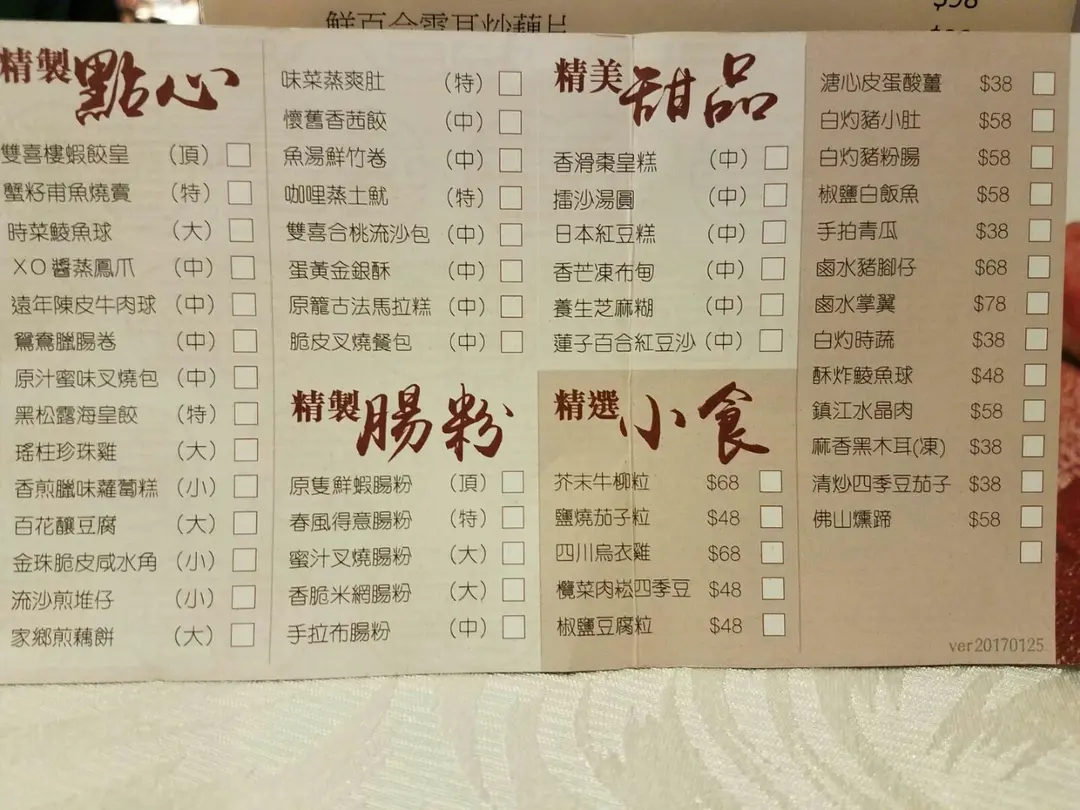 鮮百合雲耳炒藕片
精製點心
雙喜樓蝦餃皇 (頂)
蟹籽甫魚燒賣 (特)
時菜鯪魚球 (大)
XO醬蒸鳳爪 (中)
遠年陳皮牛肉球 (中)
鴛鴦臘腸卷 (中)
原汁蜜味叉燒包 (中)
黑松露海皇餃 (特)
瑤柱珍珠雞 (大)
香煎臘味蘿蔔糕 (小)
百花釀豆腐 (大)
金珠脆皮咸水角 (小)
流沙煎堆仔 (小)
家鄉煎藕餅 (大)
味菜蒸爽肚 (特)
懷舊香茜餃 (中)
魚湯鮮竹卷 (中)
咖哩蒸土魷 (特)
雙喜合桃流沙包 (中)
蛋黃金銀酥 (中)
原籠古法馬拉糕 (中)
脆皮叉燒餐包 (中)
精製腸粉
原隻鮮蝦腸粉 (頂)
春風得意腸粉 (特)
蜜汁叉燒腸粉 (大)
香脆米網腸粉 (大)
手拉布腸粉 (中)
精美甜品
香滑棗皇糕 (中)
擂沙湯圓 (中)
日本紅豆糕 (中)
香芒凍布甸 (中)
養生芝麻糊 (中)
蓮子百合紅豆沙 (中)
精選小食
芥末牛柳粒 $68
鹽燒茄子粒 $48
四川烏衣雞 $68
欖菜肉崧四季豆 $48
椒鹽豆腐粒 $48
溏心皮蛋酸薑 $38
白灼豬小肚 $58
白灼豬粉腸 $58
椒鹽白飯魚 $58
手拍青瓜 $38
鹵水豬腳仔 $68
鹵水掌翼 $78
白灼時蔬 $38
酥炸鯪魚球 $48
鎮江水晶肉 $58
麻香黑木耳(凍) $38
清炒四季豆茄子 $38
佛山燻蹄 $58
ver20170125